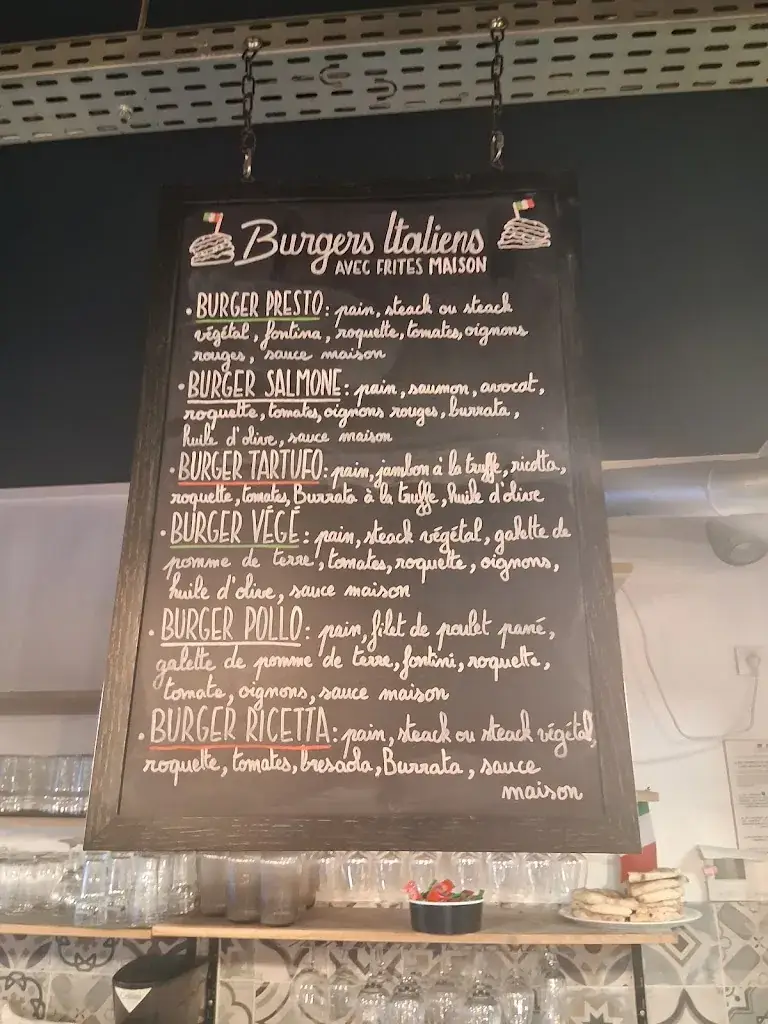 Burgers Italiens
AVEC FRITES MAISON
• BURGER PRESTO: pain, steack ou steack
végétal, fontina, roquette, tomates, oignons
rouges, sauce maison
• BURGER SALMONE: pain, saumon, avocat,
roquette, tomates, oignons rouges, burrata,
huile d'olive, sauce maison
• BURGER TARTUFO: pain, jambon à la truffe, ricotta,
roquette, tomates, Burrata à la truffe, huile d'olive
• BURGER VÉGÉ: pain, steack végétal, galette de
pomme de terre, tomates, roquette, oignons,
huile d'olive, sauce maison
• BURGER POLLO: pain, filet de poulet pané,
galette de pomme de terre, fontini, roquette,
tomate, oignons, sauce maison
• BURGER RICETTA: pain, steack ou steack végétal,
roquette, tomates, bresaola, Burrata, sauce
maison